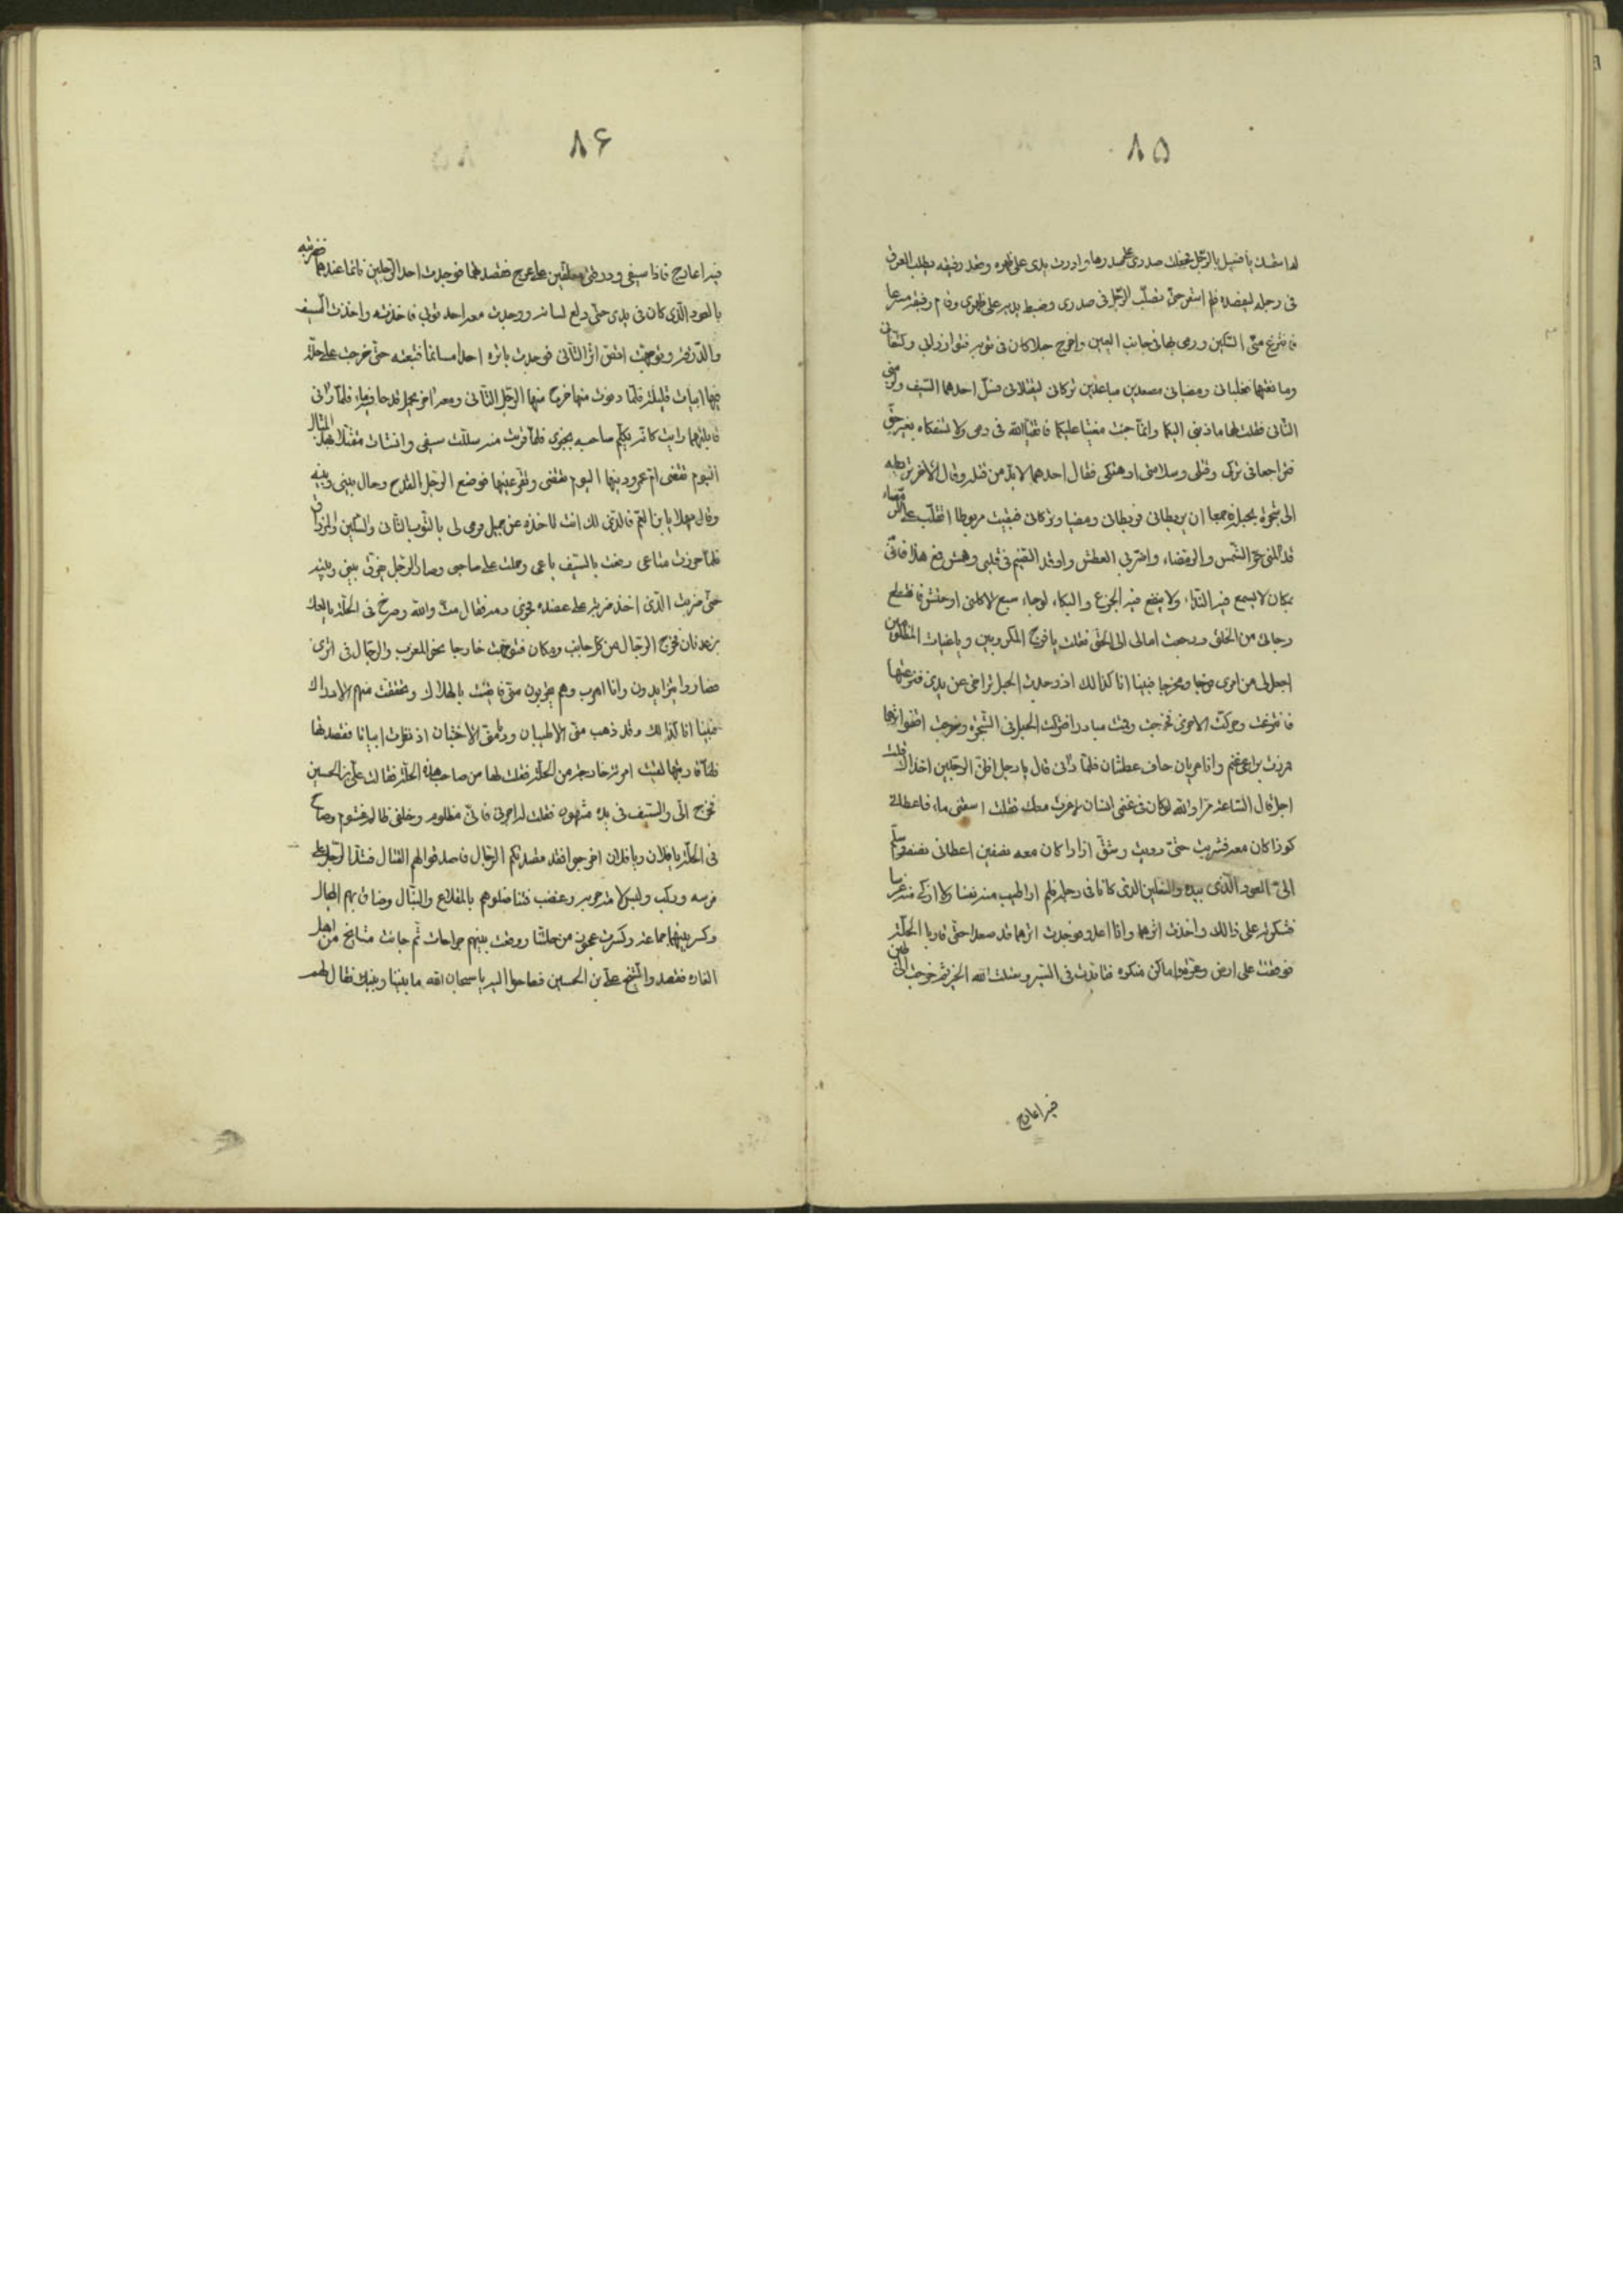 ٨۵
له اسقك يا فضيل بالرجل صدرى على صدرها وادرت يدى على ظهره وقعد رفيقه يطلب العرق
فى رجله ليفصده فلم اشعر حتى الرجل فى صدرى وضبط يديه على ظهرى وقام رفيقه مسرعا
منى السكين ورمى بها فى جانب البين واخرج حبلا كان فى ثوبه وكتفانى
ومانعتهما فغلبانى ومضيا فى مصعدين مباعدين تركانى ليقتلانى فسل احدهما السيف
الثانى فقلت لهما ما ذنبى اليكما وانما جئت مغيثا عليكما فاتقيا الله فى دمى ولا تسفكاه بغير حق
فتراجعا فى تركى وقتلى وسلامتى او هتكى فقال احدهما لا بد من قتله وقال الآخر نربطه
الى شجرة بحبله جميعا ان يربطانى فربطانى ومضيا وتركانى فبقيت مربوطا اتقلب على الرمضاء
قد المنى حر الشمس والرمضاء واضر بى العطش واوقد الضيم فى قلبى وهشى مع هذا فانى
بمكان لا يسمع فيه النداء ولا ينفع فيه الجزع والبكاء لوجاء سبع لاكلنى او حنش فانقطع
رجائى من الخلق ورجعت امالى الى الحق فقلت يا فرج المكروبين ويا غياث المظلومين
اجعل لى من امرى فرجا ومخرجا فبينا انا كذالك اذ وجدت الحبل تراخى عن يدى فنزعتها
فانتزعت وحركت الاخرى فخرجت وقمت مبادرا فتركت الحبل فى الشجرة وخرجت اقفو اثرهما
مررت براعى غنم وانا عريان حاف عطشان فلما رآنى قال يا رجل اظن الرجلين اخذاك قلت
اجل قال الساعة مرا والله لو كان فى غنمى انسان لاخرت معك فقلت اسقنى ماء فاعطانى
كوزا كان معه فشربت حتى رويت وشق ازارا كان معه نصفين اعطانى نصفه وسلم
الى العود الذى بيده والنعلين الذى كانا فى رجله فلم ار اطيب منه نفسا ولا ازكى منه غرسا
فشكرته على ذالك واخذت اثرهما وانا اعدو فوجدت اثرهما قد صعدا حتى قاربا الحلة
فوطئت على ارض وعرة واماكن منكرة فتماديت فى السير وسئلت الله الخيرة فخرجت الى
فيه اعارج
٨۶
فيه اعارج فاذا سيفى ودرقتى معلقين على عرج فقصدتهما فوجدت احد الرجلين نائما عندهما فضربته
بالعود الذى كان فى يدى حتى دلع لسانه ووجدت معه احد ثوبى فاخذته واخذت السيف
والدرقة وتوجهت اقتص اثر الثانى فوجدت باثره احدا مسائما فتبعته حتى خرجت على حلة
فيها ابيات قليلة فلما دنوت منها خرج منها الرجل الثانى ومعه آخر يحمل قدحا فيه ماء فلما رآنى
قابلتهما رايت كانه يكلم صاحبه بخبرى فلما قربت منه سللت سيفى وانشات متمثلا بهذا المثال
اليوم تقضى ام عمرو دينها اليوم تقضى وتقر عينها فوضع الرجل القدح وحال بينى وبينه
وقال مهلا يا بن العم فالذى لك انت تاخذه عن جميل ورمى لى بالثوب الثانى والسكين
فلما حزت متاعى رفعت بالسيف باعى وحملت على صاحبى وصار الرجل بينى وبينه
حتى ضربت الذى اخذ ضربة على عضده دمه فقال مت والله وصرخ فى الحلة
فخرج الرجال من كل جانب ومكان فتوجهت خارجا نحو المغرب والرجال فى اثرى
فصاروا يتزايدون وانا اهرب وهم يقربون منى فايقنت بالهلاك وتحققت منهم الادراك
فبينا انا كذالك وقد ذهب منى الاطيبان ورمقنى الاخبثان اذ نظرت ابياتا فقصدتها
فلما قاربتها لقيت امرئة خارجة من الحلة فقلت لها من صاحب هذه الحلة فقالت على بن الحسين
فخرج الى والسيف فى يده مشهور فقلت له اجرنى فانى مظلوم وخلفى ظالم غشوم وصاح
فى الحلة يا فلان ويا فلان اخرجوا فقد قصدتكم الرجال فاصدقوا لهم القتال الرجل على
فرسه وركب ولبس لامة حربه وغضب فتناضلوهم بالمقلاع والنبال وضاق بهم المجال
وكسر بينهما جماعة وكسرت من حلتنا ووقعت بينهم جراحات ثم جائت مشايخ من اهل
الغارة فقصدوا الشيخ على بن الحسين فصاحوا اليه يا سبحان الله ما بيننا وبينك فقال لهم